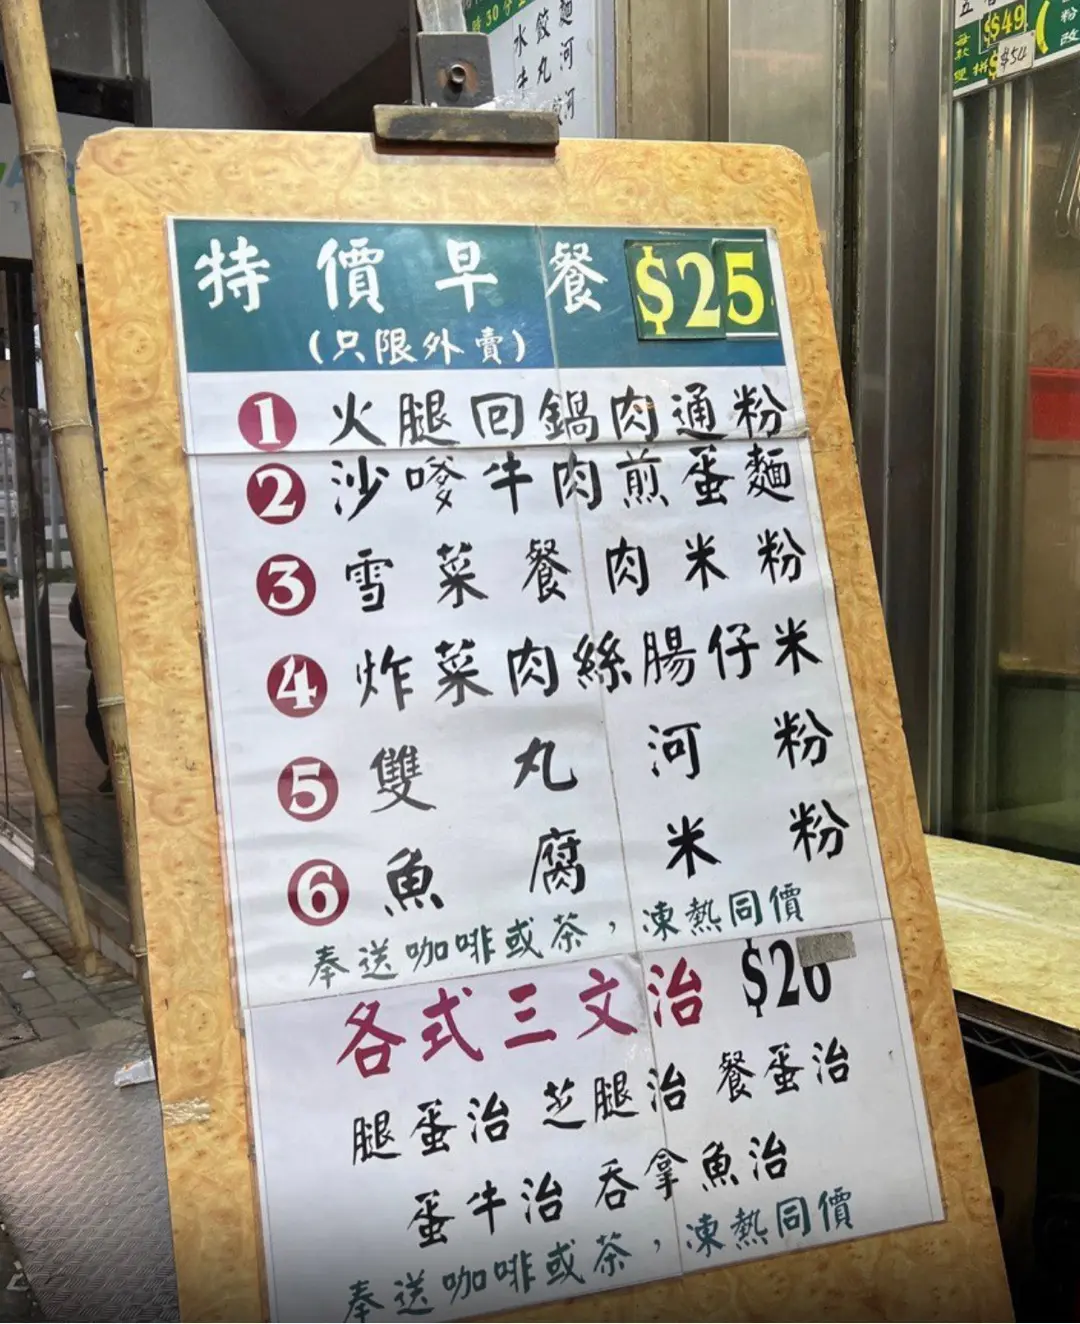 時30分
水餃麵
牛丸河
$49
$54
特價早餐 $25
(只限外賣)
1 火腿回鍋肉通粉
2 沙嗲牛肉煎蛋麵
3 雪菜餐肉米粉
4 炸菜肉絲腸仔米
5 雙丸河粉
6 魚腐米粉
奉送咖啡或茶，凍熱同價
各式三文治 $26
腿蛋治 芝腿治 餐蛋治
蛋牛治 吞拿魚治
奉送咖啡或茶，凍熱同價